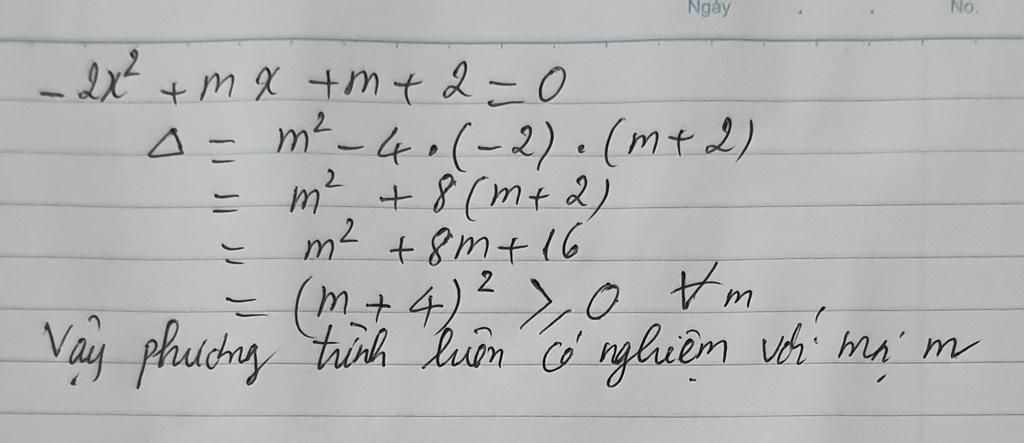 Ngày . . No.
- 2x² + m x + m + 2 = 0
Δ = m² - 4 . (-2) . (m + 2)
= m² + 8(m + 2)
= m² + 8m + 16
= (m + 4)² ≥ 0 ∀m
Vậy phương trình luôn có nghiệm với mọi m